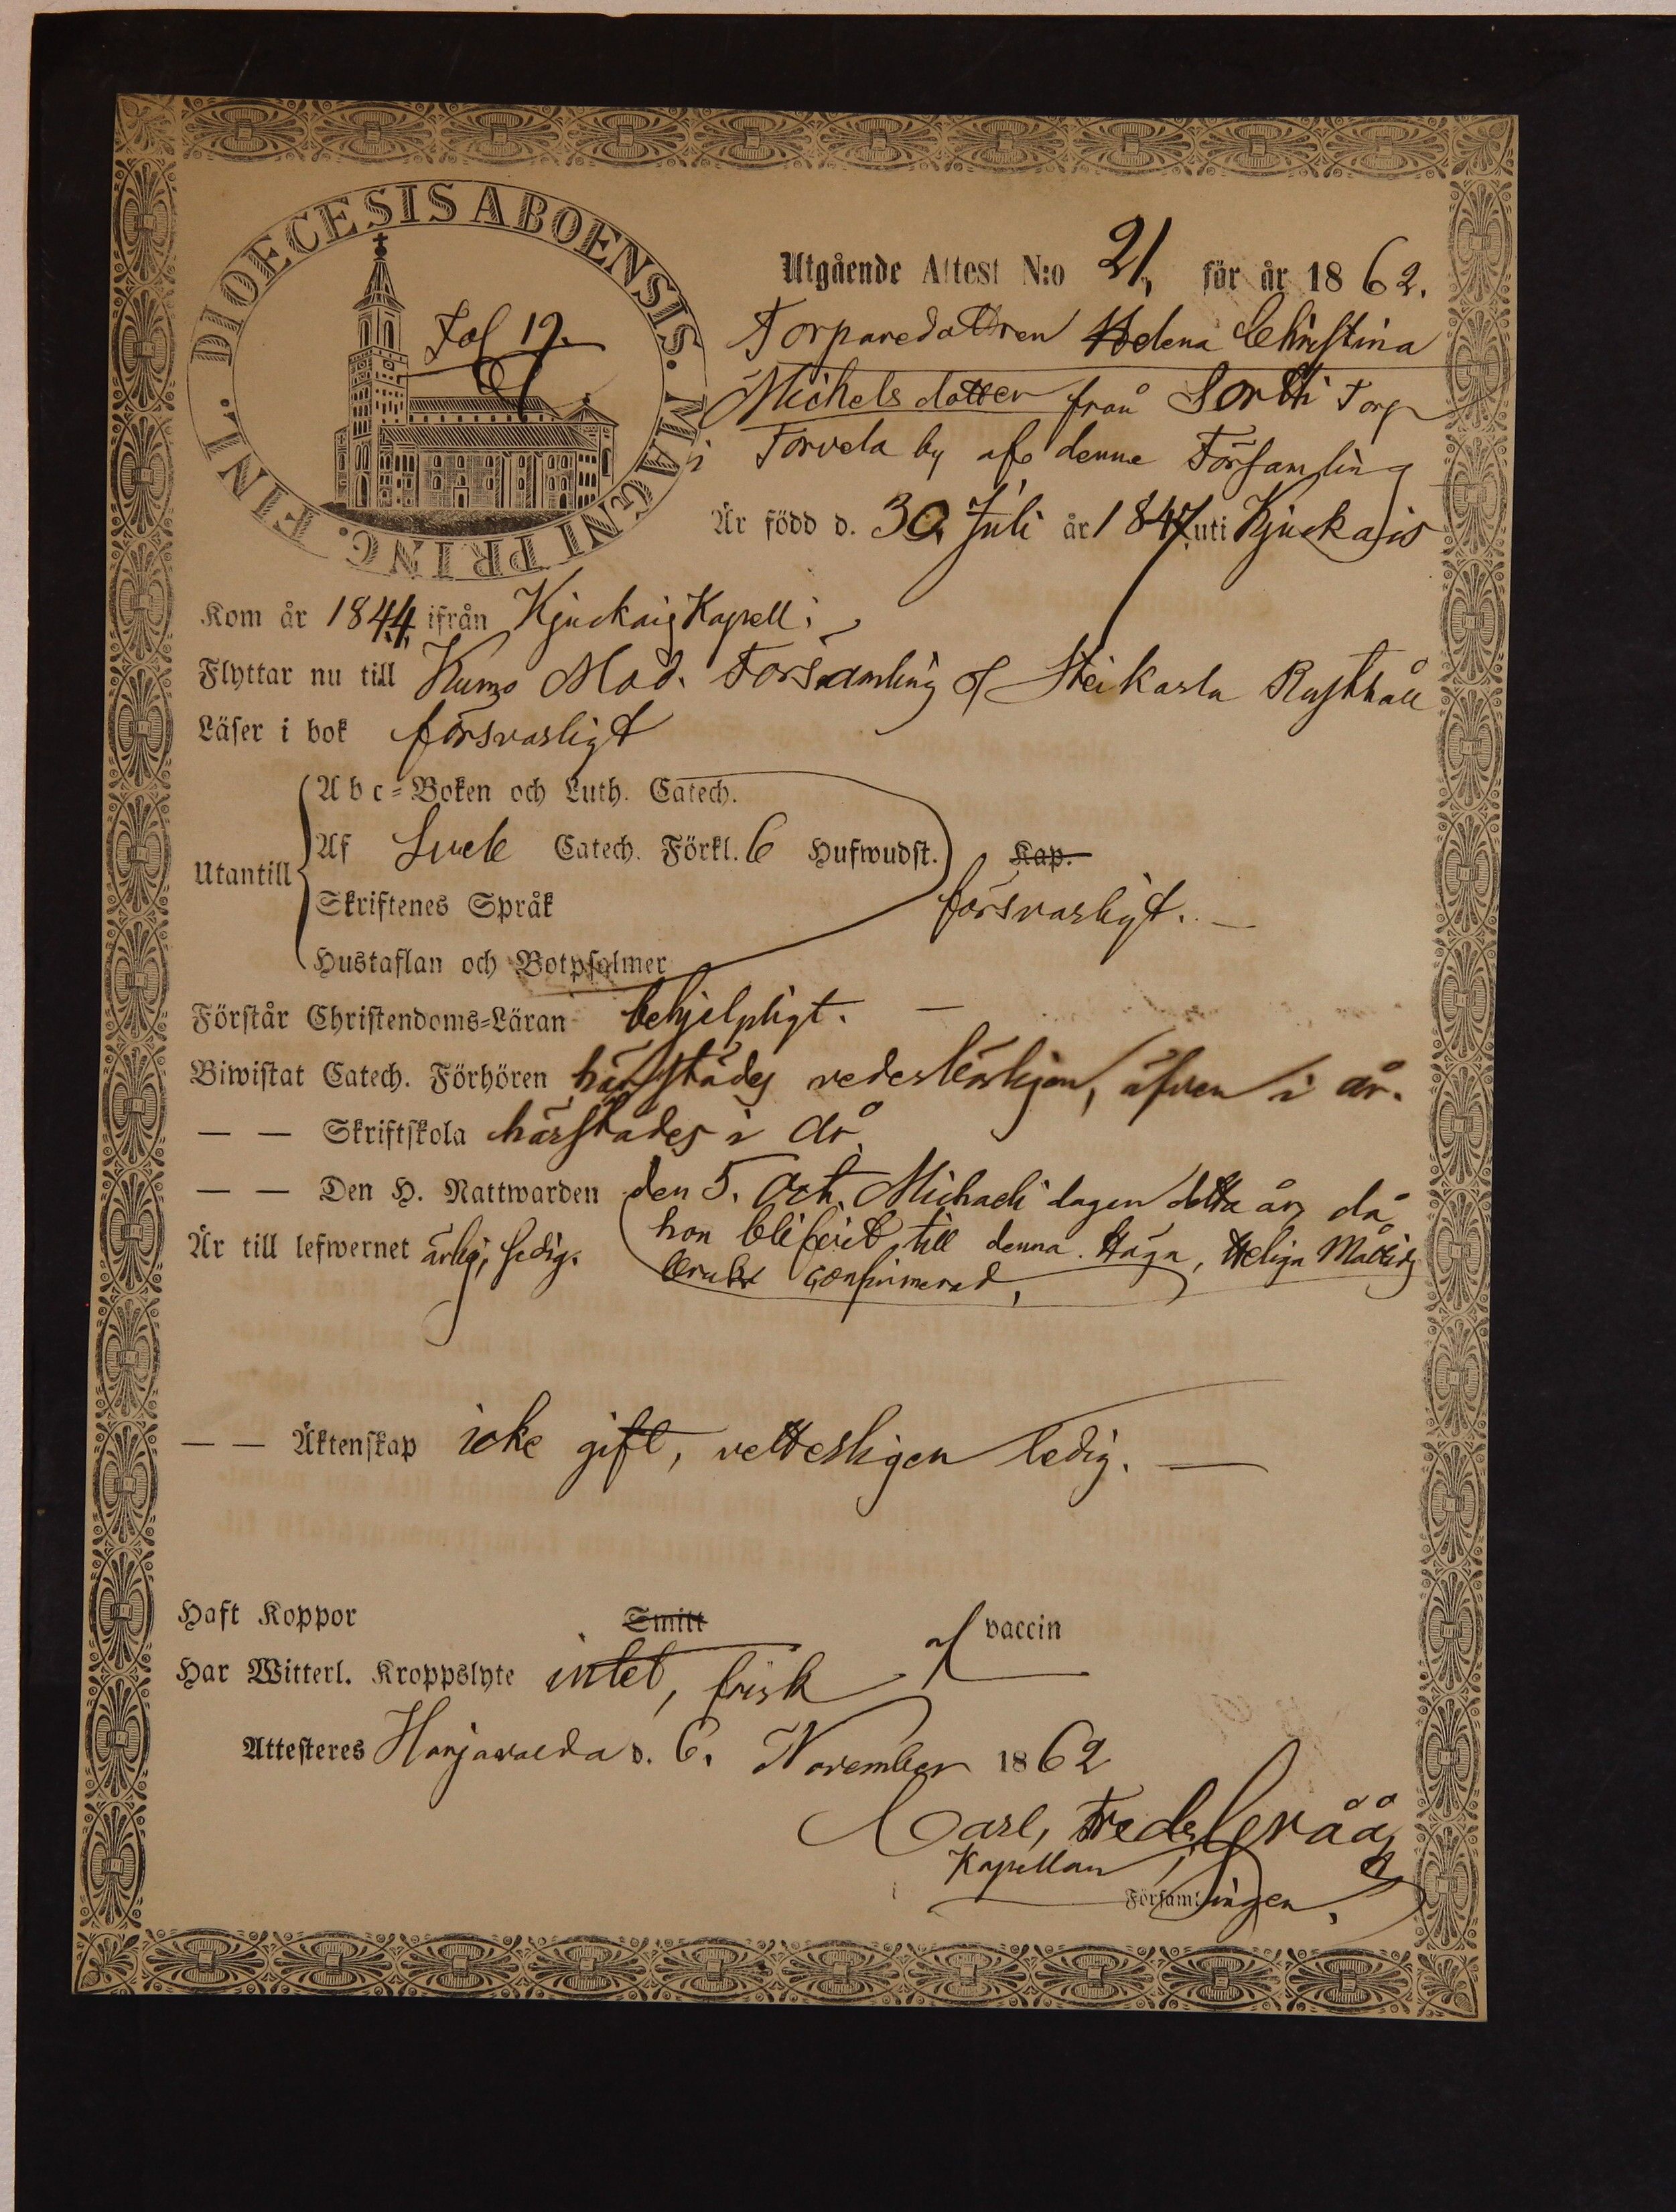 DIOECESIS ABOENSIS. MAGNI PRINC. FINL.
Fol 19.
Utgående Attest N:o 21, för år 1862.
Torparedottren Helena Christina
Michelsdotter från Sortti Torp
i Torvela by af denne Församling
Är född d. 30. Juli år 1847 uti Kjuckais
Kom år 1844 ifrån Kjuckais Kapell;
Flyttar nu till Kumo Mod. Församling & Steikarla Rusthåll
Läser i bok försvarligt
Utantill
Abc-Boken och Luth. Catech.
Af Sveb Catech. Förkl. 6 Hufwudst. Kap.
Skriftenes Språk försvarligt. —
Hustaflan och Botpsalmer
Förstår Christendoms-Läran behjelpligt. —
Biwistat Catech. Förhören härstädes vederbörligen, äfven i år.
— — Skriftskola härstädes i år
— — Den H. Nattwarden den 5. Oct. Michaeli dagen detta år, då
hon blifvit till denna Höga, Heliga Måltids
bruk confirmerad,
Är till lefwernet ärlig, sedig.
— — Äktenskap icke gift, vetterligen ledig. —
Haft Koppor Smitt af vaccin
Har Witterl. Kroppslyte intet, frisk
Attesteres Harjavalda d. 6. November 1862
Carl, Fredr. Gråå,
Kapellan
i Församlingen,